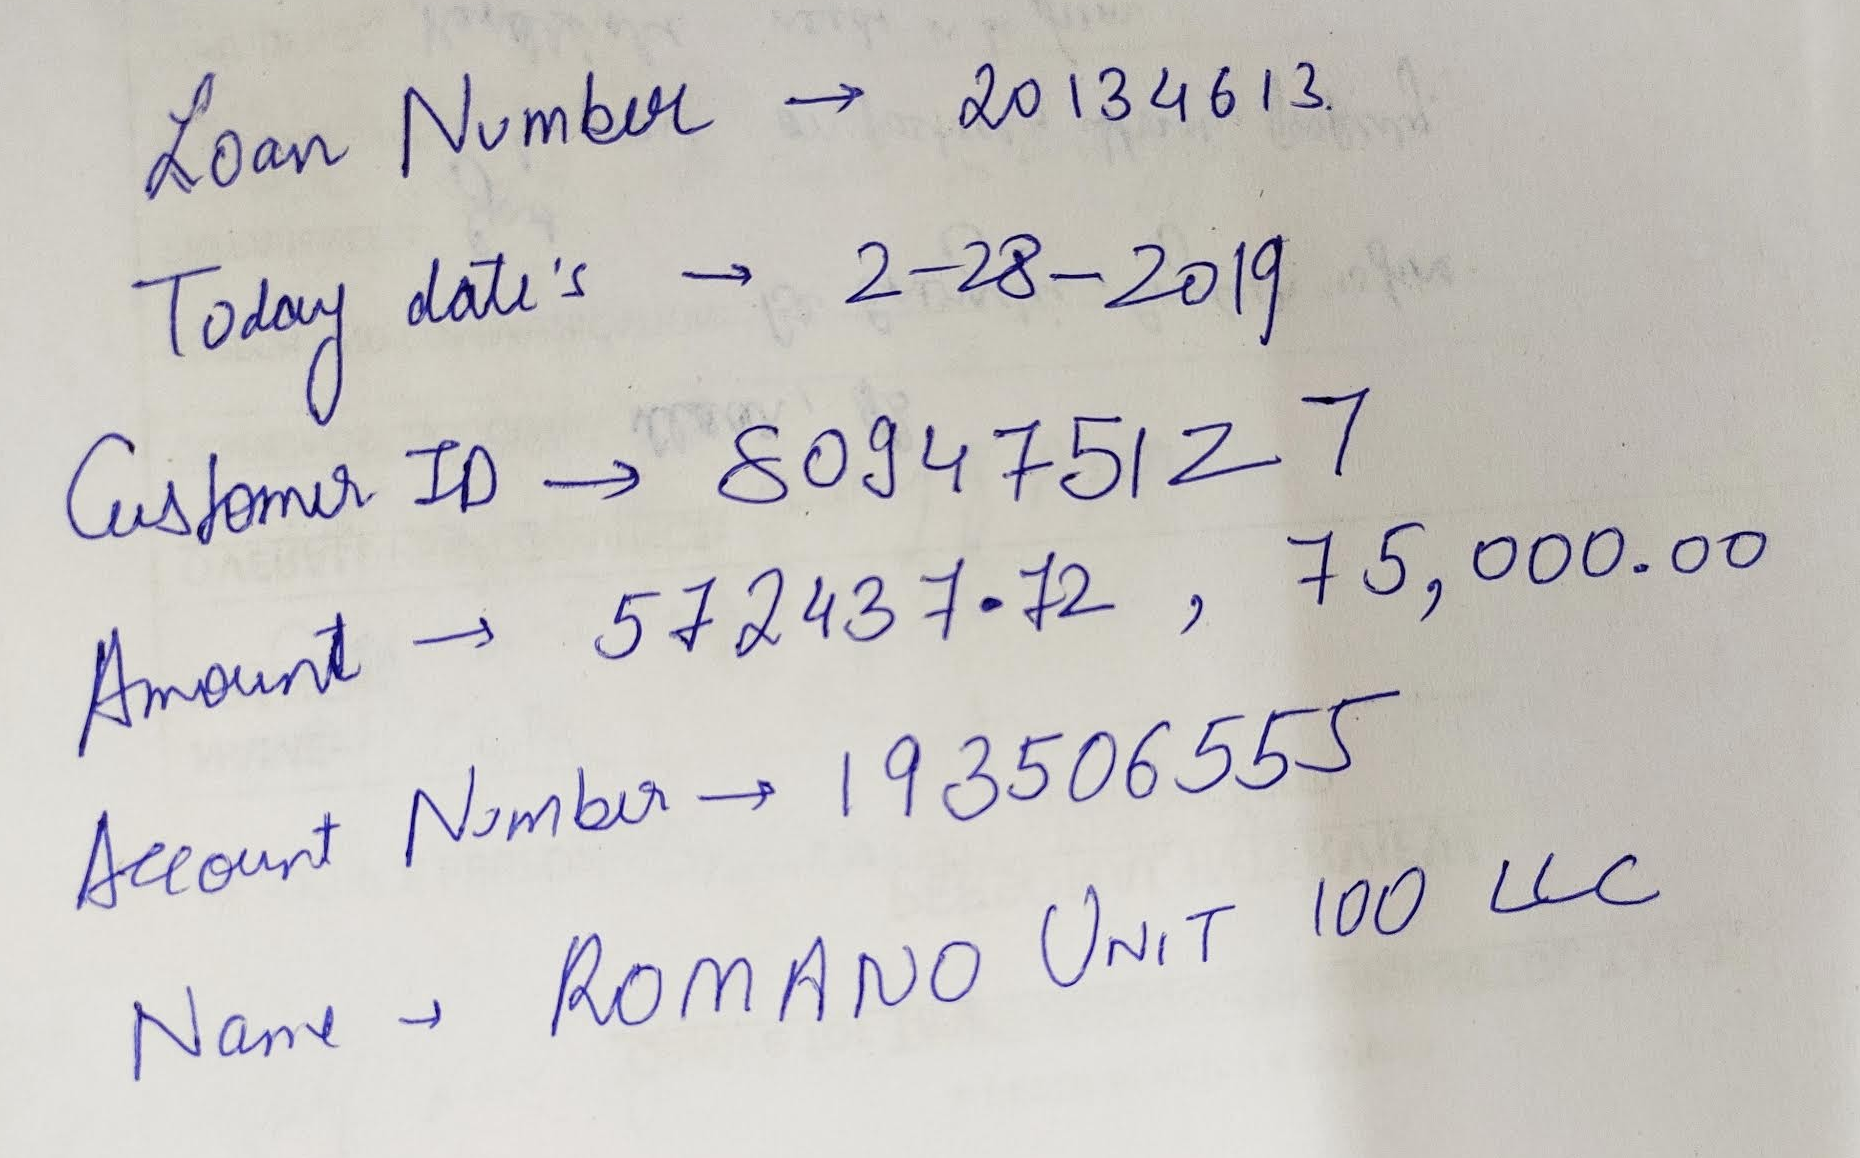 Loan Number → 20134613.
Today date's → 2-28-2019
Customer ID → 809475127
Amount → 572437.72 , 75,000.00
Account Number → 193506555
Name → ROMANO UNIT 100 LLC